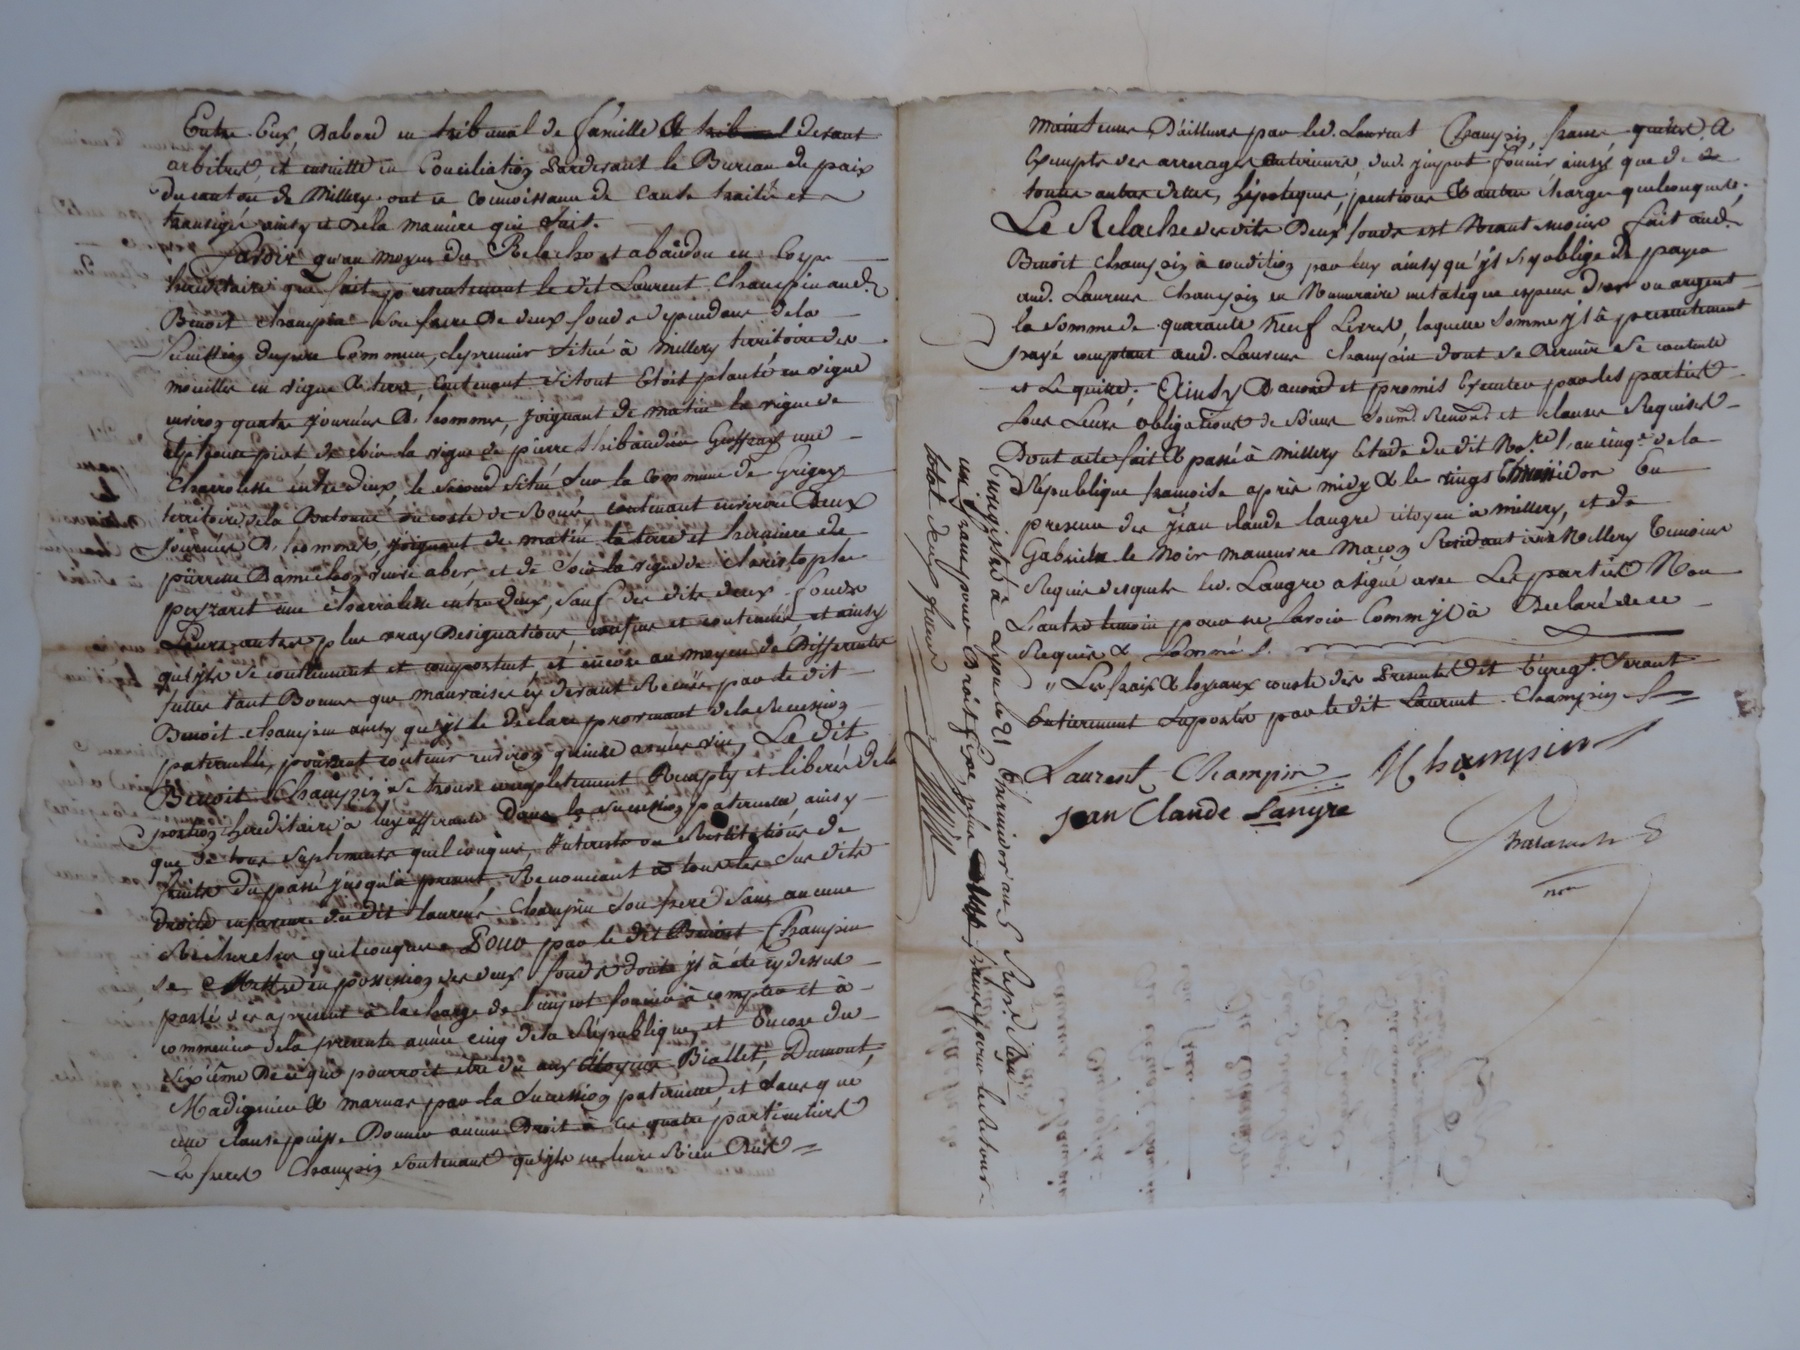 Entre Eux, Dabord en tribunal de famille devant
arbitres, et ensuitte en Conciliation Pardevant le Bureau de paix
du canton de Millery ont en connoissance de Cause traité et
transigé ainsy et de la maniere qui suit.
Savoir Qu'au moyen du Relache et abandon en Corps
hereditaire que fait presentement le dit Laurent Champin aud.
Benoit champin son frere De deux fonds dependans de la
Succession du pere Commun, le premier Situé à Millery territoire des
mouilles en vigne & terre, Contenant si tout Etoit planté en vigne
environ quatre journées D. homme, joignant de matin la vigne de
de soir la vigne de pierre Thibaudier une
Charrolesse entre deux, le second situé Sur la Commune de Grigny
territoire de la contenant environ Deux
Journées D. hommes, joignant de matin la terre et de
pierrette veuve et de Soir la vigne de christophe
une charroless entre deux, Sauf des dits deux fonds
Leurs autres plus vrays Designations confins et contenues, et ainsy
qu'yls se contiennent et comportent, et encore au moyen de Differentes
futtes tant Bonnes que mauvaises cy devant Recues par le dit
Benoit champin ainsy qu'yl le declare provenant de la Succession
paternelle, pouvant contenir environ quinze années vin, Le dit
Benoit Champin se trouve completement Remply et liberé de la
portion hereditaire a luy afferante Dans la succession paternelle ainsy
que de tous suplements quelconques, Interests ou Restitutions de
fruits du passé jusqu'à present, Renonciant à tous les Sus dits
droits en faveur du dit laurent Champin Son frere Sans aucune
Recherche quelconque Pour par le dit Benoit Champin
se Mettre en possession des deux fonds dont yl à été cy dessus
parlé des apresent à la charge de l'impot foncier à compter et à
commencer de la presente année cinq de la Republique, et Encore du
Sixiéme De ce que pourroit etre du aux Citoyens Biallet, Dumont,
Madignier & marnas par la Succession paternelle, et Sans que
cette clause puisse Donner aucun Droit à ces quatre particuliers
Les freres Champin Soutenant qu'yls ne leurs Rien Dus
maintenus D'ailleurs par led. Laurent Champin, francs, quittes &
Exempts des arrerages anterieurs, dud. impot foncier ainsy que de
toutes autres dettes, hypoteques, pentions & autres charges quelconques,
Le Relache des dits Deux fonds est Neant moins fait aud.
Benoit champin à condition par luy ainsy qu'yl s'y oblige de payer
aud. Laurent Champin en Numeraire metalique especes d'or ou argent
la Somme de quarante Neuf Livres, laquelle Somme yl à presentement
payé comptant aud. Laurent champin dont ce Dernier Se contente
et Le quitte; Ainsy D'acord et promis Executer par les parties
Sous Leurs obligations de Biens Soumd. Renond. et clauses Requises
Dont acte fait & passé à millery Etude du dit No.re l'an cinq.e de la
Republique francoise après midy & le vingt thermidor En
presence de Jean claude langre citoyen à millery, et de
Gabriel le Noir Maçon Residant à Millery Temoins
Requis desquels led. Langre à Signé avec Les parties Non
L'autre temoin pour ne Savoir Comm yl à Declaré de ce
Requis & Sommé.
" Les fraix & loyeaux couts des Presentes dit Enregt. Seront
Entierement Suportés par le dit Laurent Champin
Laurent Champin Champin
jean Claude Langre
nre
Enregistré à Lyon le 21 thermidor an 5 Rep.
un franc pour Droit fixe plus francs pour le Retour
total deux francs